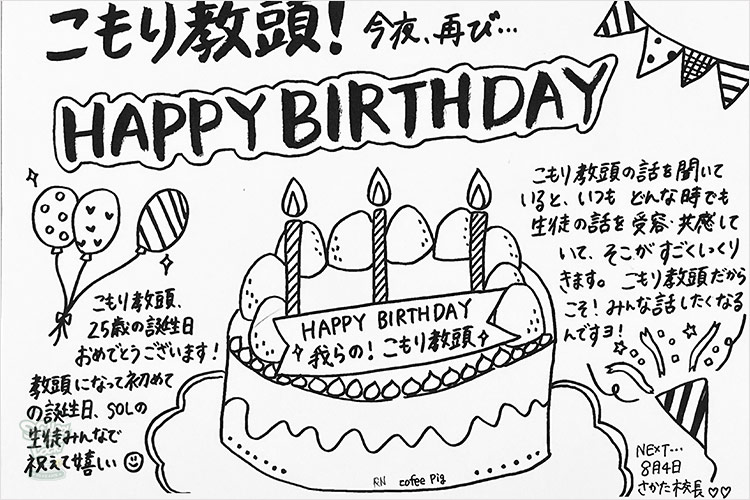 こもり教頭！今夜、再び…
HAPPY BIRTHDAY
こもり教頭の話を聞いて
いると、いつも どんな時でも
生徒の話を受容・共感して
いて、そこがすごくしっくり
きます。こもり教頭だから
こそ！みんな話したくなる
んですヨ！
こもり教頭、
25歳の誕生日
おめでとうございます！
教頭になって初めて
の誕生日、SOLの
生徒みんなで
祝えて嬉しい
HAPPY BIRTHDAY
我らの！こもり教頭
RN cofee Pig
NEXT…
8月4日
さかた校長♡♡